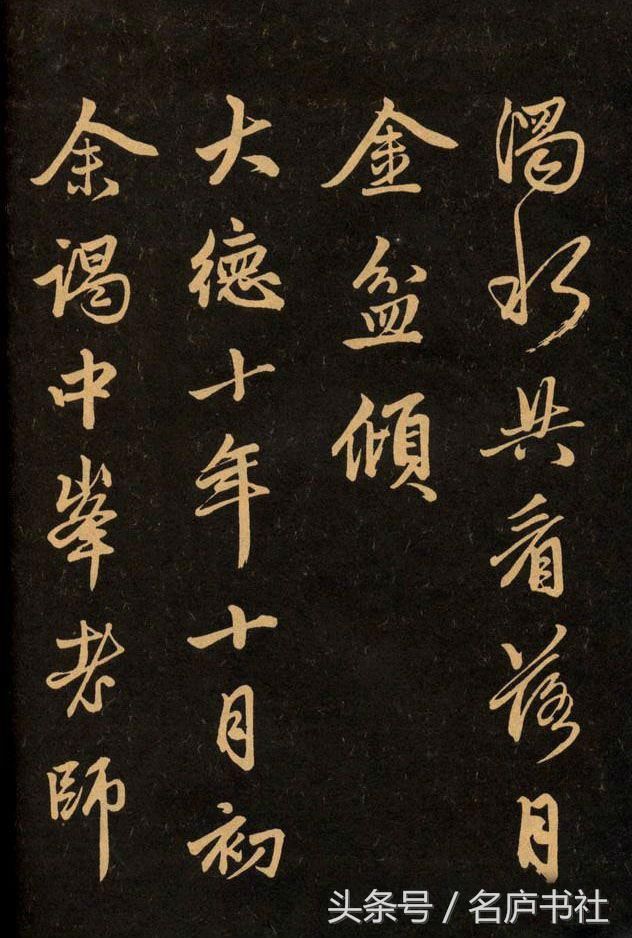 濁水共看落月
金盆傾
大德十年十月初
余謁中峯老師
头条号 / 名庐书社